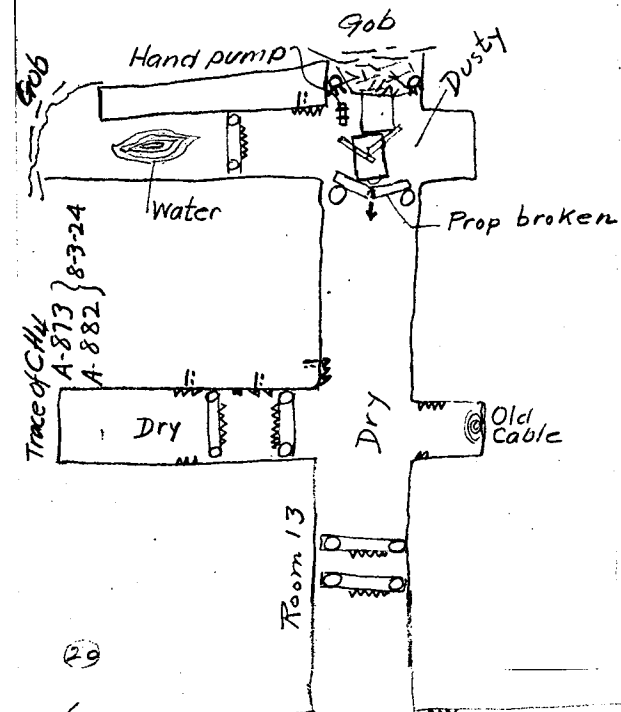 Gob
Hand pump
Gob
Dusty
Water
Prop broken
Trace of CH4
A-873 } 8-3-24
A-882
Dry
Dry
Old
Cable
Room 13
20